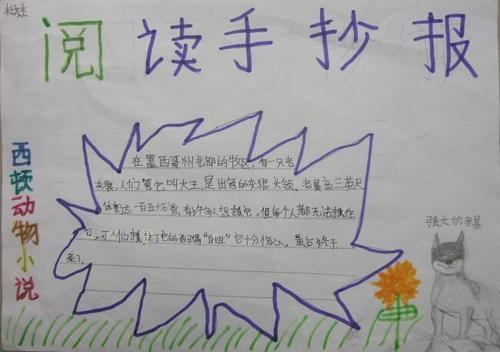 阅读手抄报
西顿动物小说
在墨西哥州北部的牧区,有一只老
灰狼,人们管它叫大王,是出色的灰狼头领。老暴高三英尺
体重达一百五十磅。有许多人想抓它,但每个人都无法抓住
它,可人们抓住了它的配偶"白姐"它十分伤心,最后终于
死了。
强大的老暴